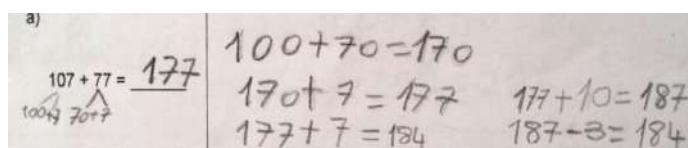 a)
107 + 77 = 177
100+7 70+7
100+70=170
170+7=177
177+7=184
177+10=187
187-3=184